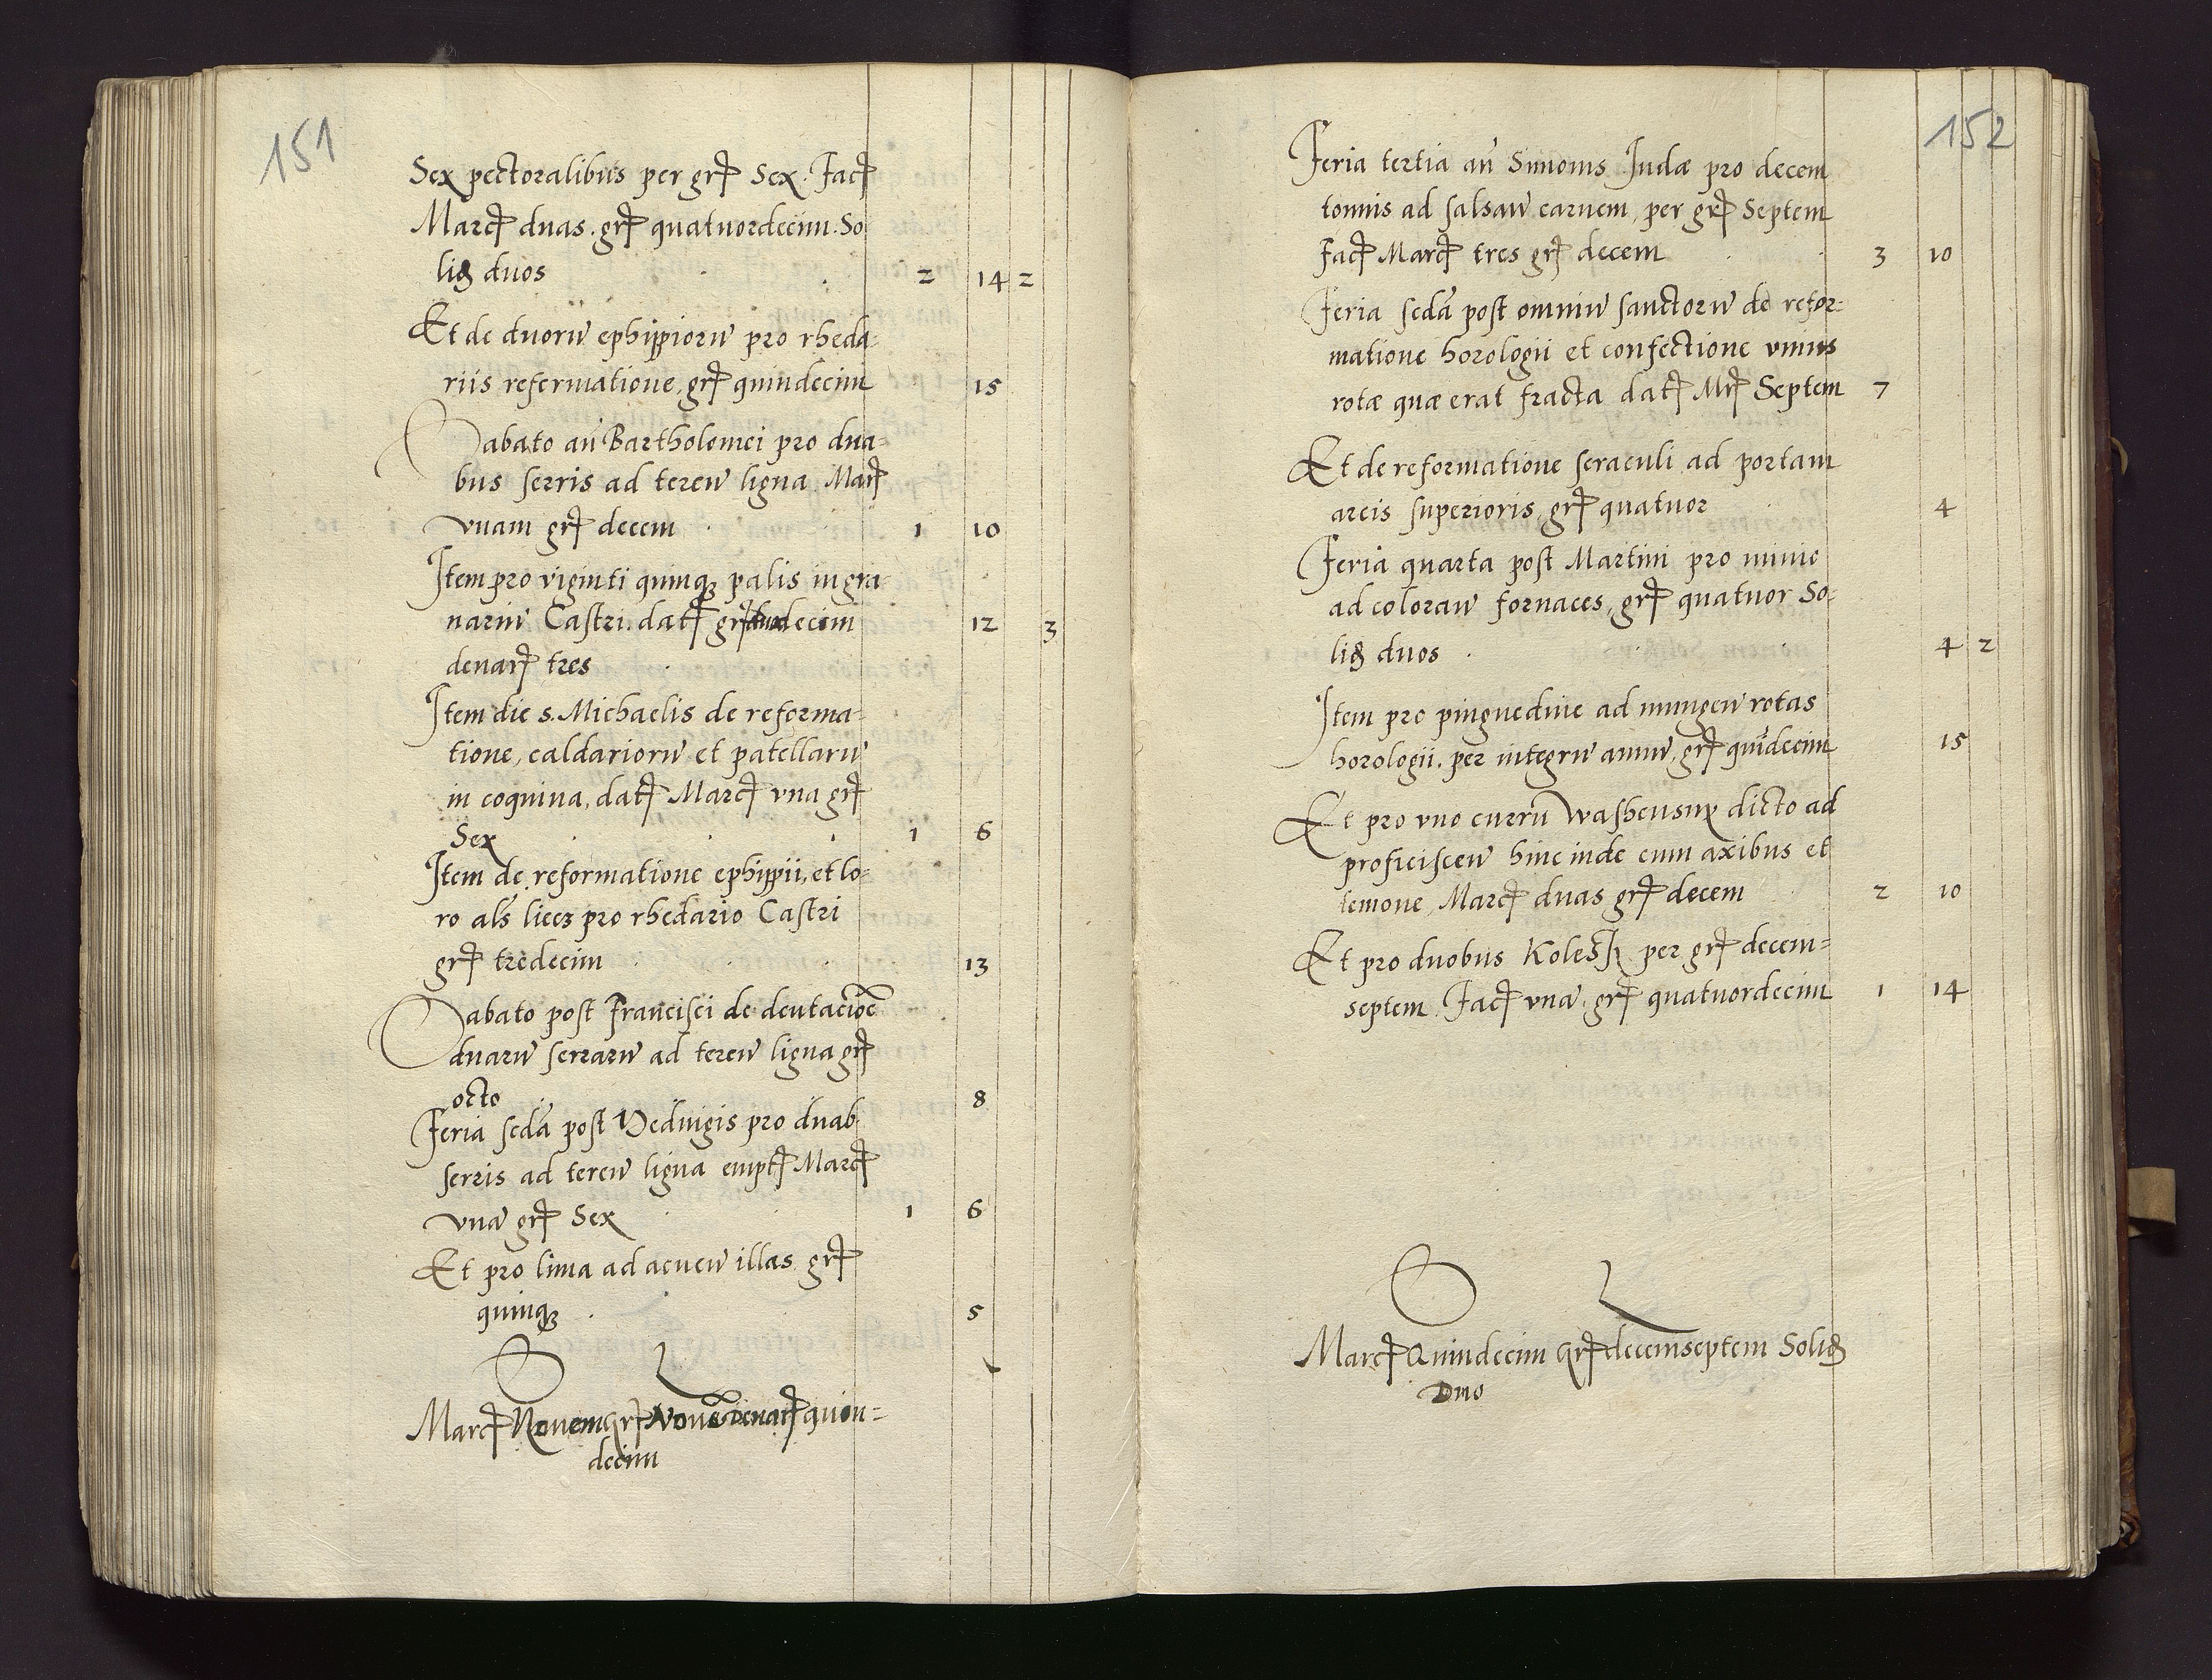 151
Sex pectoralibus per grꝭ Sex. Facꝭ
Marcꝭ duas. grꝭ quatuordecim. So
lidꝭ duos 2 14 2
Et de duorū ephippiorū pro rheda-
riis reformatione, grꝭ quindecim 15
Sabato añ Bartholomei pro dua-
bus serris ad terenꝰ ligna Marꝭ
vnam grꝭ decem 1 10
Item pro viginti quinqꝫ palis in gra-
nariū Castri. datꝭ grꝭ duodecim 12 3
denarꝭ tres
Item die s. Michaelis de reforma-
tione, caldariorū et patellarū
in coquina, datꝭ Marcꝭ vna grꝭ
Sex 1 6
Item de reformatione ephippii, et lo-
ro als̃ liecz pro rhedario Castri
grꝭ tredecim 13
Sabato post Francisci de dentacioē
duarū serrarū ad terenꝰ ligna grꝭ
octo 8
Feria scdā post Hedvigis pro duab.
serris ad terenꝰ ligna emptꝭ Marcꝭ
vnā grꝭ Sex 1 6
Et pro lima ad acuenꝰ illas grꝭ
quinqꝫ 5
Marcꝭ Nouem Grꝭ Nouē Denarꝭ quin-
decim
152
Feria tertia añ Simonis Judæ pro decem
tonnis ad salsanꝰ carnem, per grꝭ Septem
Facꝭ Marcꝭ tres grꝭ decem 3 10
Feria scdā post omniū sanctorū de refor-
matione horologii et confectione vnius
rotæ quæ erat fracta datꝭ Mrꝭ Septem 7
Et de reformatione seraculi ad portam
arcis superioris, grꝭ quatuor 4
Feria quarta post Martini pro minio
ad coloranꝰ fornaces, grꝭ quatuor So-
lidꝭ duos 4 2
Item pro pinguedine ad inungenꝰ rotas
horologii, per integrū annū, grꝭ quīdecim 15
Et pro vno curru dicto ad
proficiscenꝰ hinc inde cum axibus et
temone, Marcꝭ duas grꝭ decem 2 10
Et pro duobus per grꝭ decem-
septem. Facꝭ vnā, grꝭ quatuordecim 1 14
Marcꝭ Quindecim Grꝭ decemseptem Solidꝭ
Duo